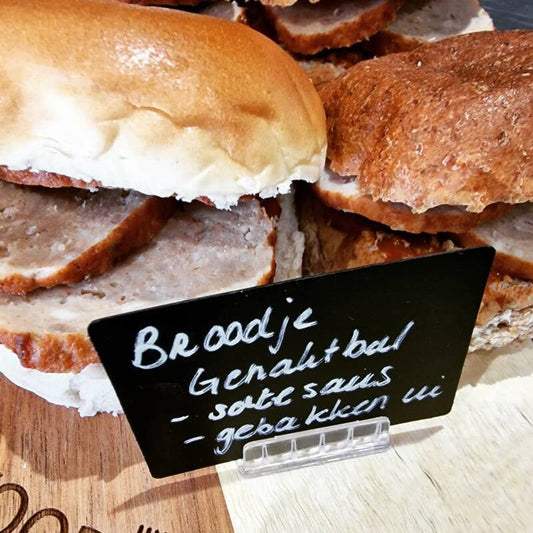 Broodje
Gehaktbal
- sate saus
- gebakken ui